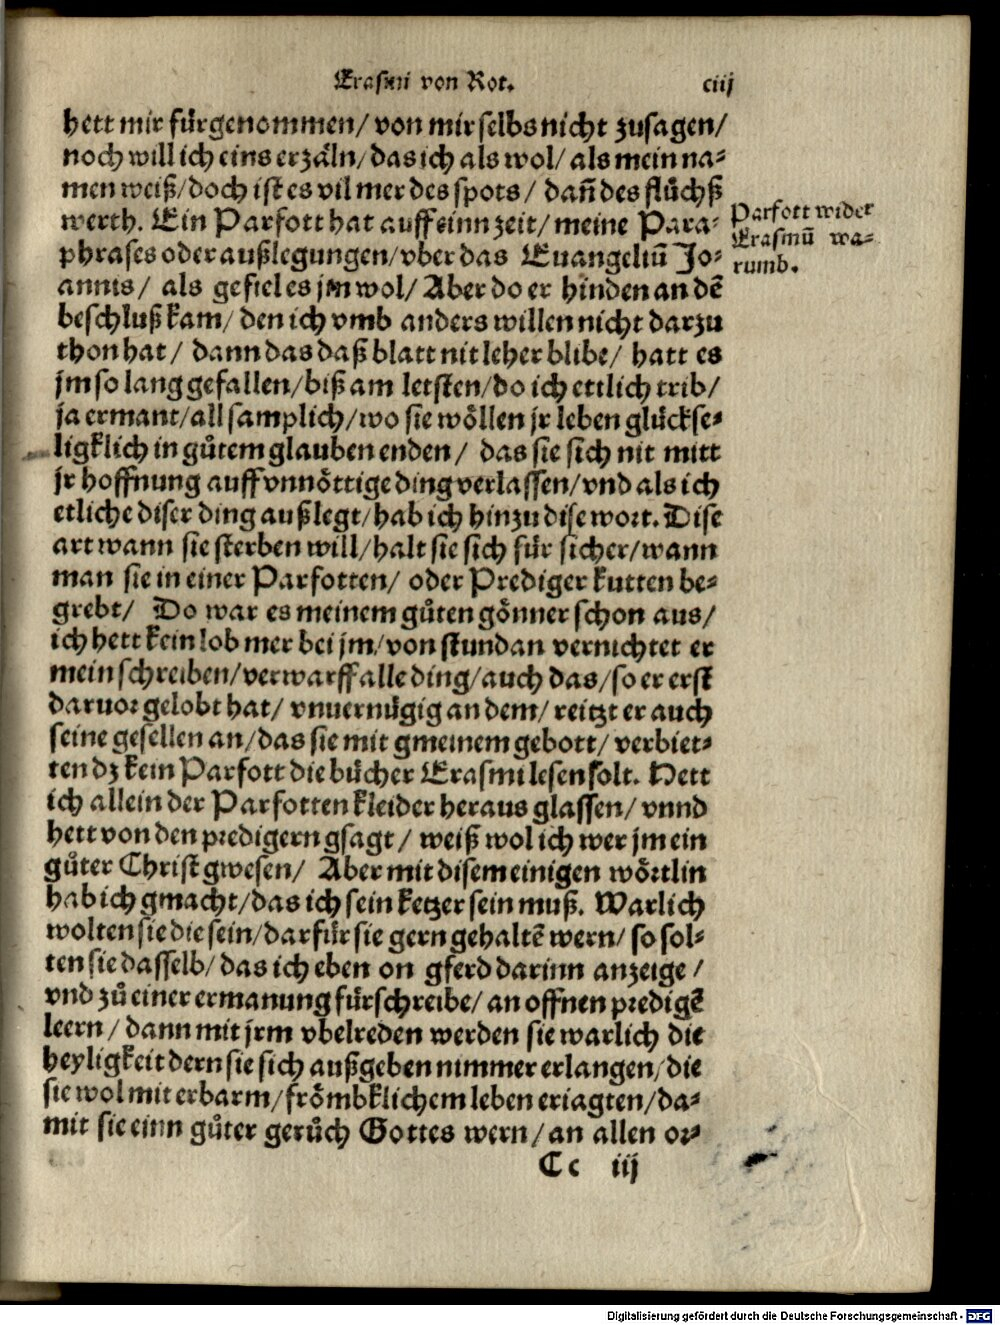 Erasmi von Rot.
ciij
hett mir fürgenommen/ von mir selbs nicht zusagen/
noch will ich eins erzäln/ das ich als wol/ als mein na⸗
men weiß/ doch ist es vil mer des spots/ dañ des flůchß
werth. Ein Parfott hat auff einn zeit/ meine Para⸗
phrases oder außlegungen/ vber das Euangeliũ Jo⸗
annis/ als gefiel es jm wol/ Aber do er hinden an dẽ
beschluß kam/ den ich vmb anders willen nicht darzu
thon hat/ dann das daß blatt nit leher blibe/ hatt es
jm so lang gefallen/ biß am letsten/ do ich ettlich trib/
ja ermant/ all samplich/ wo sie wöllen jr leben glückse⸗
ligklich in gůtem glauben enden/ das sie sich nit mitt
jr hoffnung auff vnnöttige ding verlassen/ vnd als ich
etliche diser ding außlegt/ hab ich hinzu dise wort. Dise
art wann sie sterben will/ halt sie sich für sicher/ wann
man sie in einer Parfotten/ oder Prediger kutten be⸗
grebt/ Do war es meinem gůten gönner schon aus/
ich hett kein lob mer bei jm/ von stundan vernichtet er
mein schreiben/ verwarff alle ding/ auch das/ so er erst
daruor gelobt hat/ vnuernügig an dem/ reitzt er auch
seine gesellen an/ das sie mit gmeinem gebott/ verbiet⸗
ten dz kein Parfott die bücher Erasmi lesen solt. Hett
ich allein der Parfotten kleider heraus glassen/ vnnd
hett von den predigern gsagt/ weiß wol ich wer jm ein
gůter Christ gwesen/ Aber mit disem einigen wörtlin
hab ich gmacht/ das ich sein ketzer sein muß. Warlich
wolten sie die sein/ darfür sie gern gehaltẽ wern/ so sol⸗
ten sie dasselb/ das ich eben on gferd darinn anzeige/
vnd zů einer ermanung fürschreibe/ an offnen predigẽ
leern/ dann mit jrm vbelreden werden sie warlich die
heyligkeit dern sie sich außgeben nimmer erlangen/ die
sie wol mit erbarm/ frömbklichem leben eriagten/ da⸗
mit sie einn gůter gerůch Gottes wern/ an allen or⸗
Cc iij
Parfott wider
Erasmũ wa⸗
rumb.
Digitalisierung gefördert durch die Deutsche Forschungsgemeinschaft - DFG